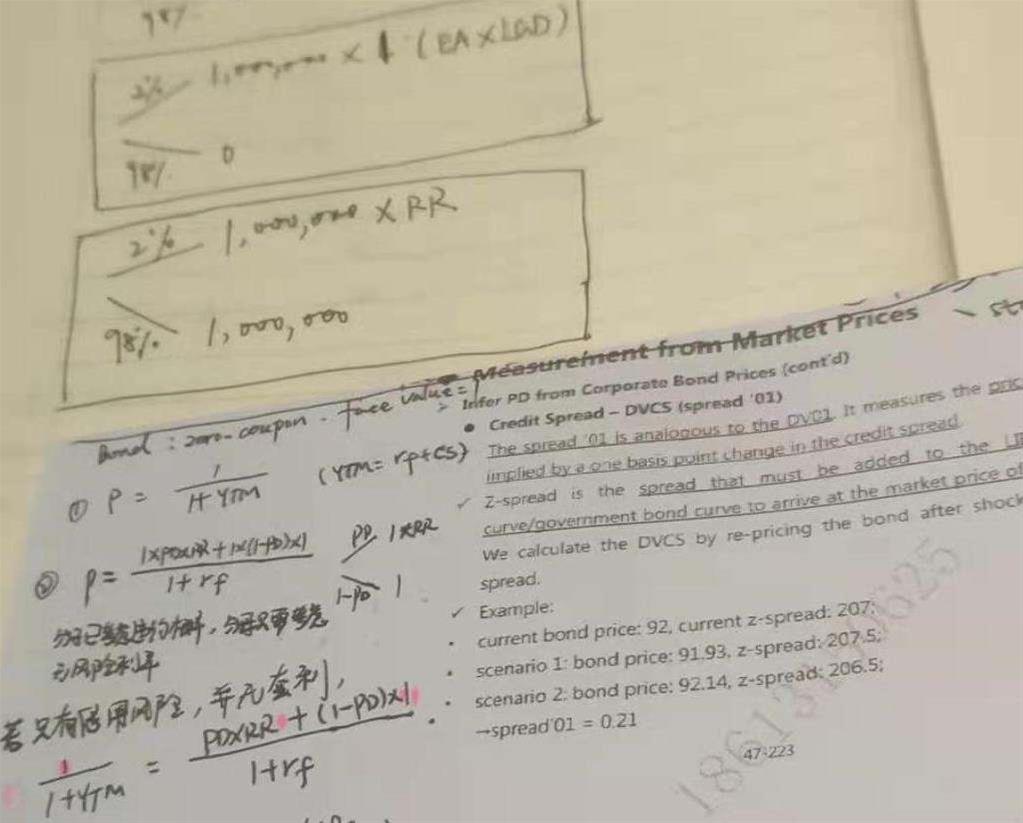 98%
2% 1,000,000 × 1 (EA×LGD)
98% 0
2% 1,000,000 × RR
98% 1,000,000
Measurement from Market Prices
Bond : zero-coupon . face value = 1
➢ Infer PD from Corporate Bond Prices (cont'd)
● Credit Spread – DVCS (spread '01)
① P = 1 / 1+YTM (YTM = rf+CS)
The spread '01 is analogous to the DV01. It measures the pric
implied by a one basis point change in the credit spread.
✓ Z-spread is the spread that must be added to the
curve/government bond curve to arrive at the market price of
We calculate the DVCS by re-pricing the bond after shock
spread.
② P = 1×PD×RR + 1×(1-PD)×1 / 1+rf
PD 1×RR
1-PD 1
分子已考虑违约概率，分母只要考虑
无风险利率
✓ Example:
• current bond price: 92, current z-spread: 207;
• scenario 1: bond price: 91.93, z-spread: 207.5;
• scenario 2: bond price: 92.14, z-spread: 206.5;
→spread'01 = 0.21
若只有信用风险，并无套利，
1 / 1+YTM = PD×RR + (1-PD)×1 / 1+rf
47-223